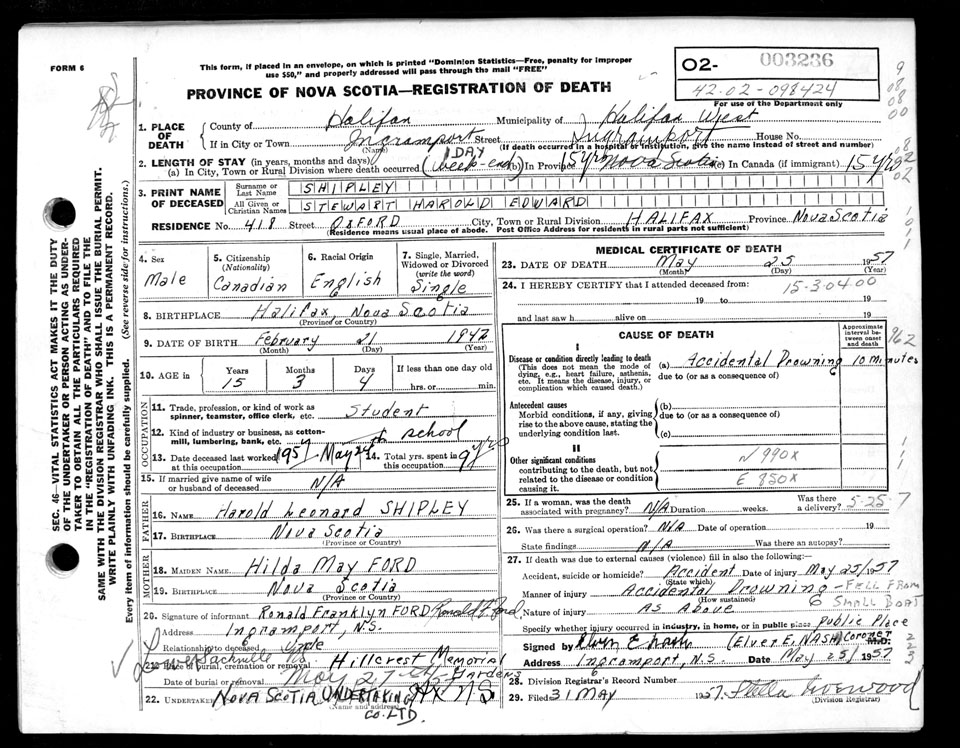 FORM 6
This form, if placed in an envelope, on which is printed "Dominion Statistics—Free, penalty for improper
use $50," and properly addressed will pass through the mail "FREE"
02- 003236
42-02-098424
For use of the Department only
PROVINCE OF NOVA SCOTIA—REGISTRATION OF DEATH
1. PLACE OF DEATH
County of Halifax Municipality of Halifax West
If in City or Town Ingramport Street Ingramport House No.
(Name) (If death occurred in a hospital or institution, give the name instead of street and number)
2. LENGTH OF STAY (in years, months and days)
(a) In City, Town or Rural Division where death occurred 1 DAY (week-end) (b) In Province 15 yrs Nova Scotia (c) In Canada (if immigrant) 15 yrs
3. PRINT NAME OF DECEASED
Surname or Last Name SHIPLEY
All Given or Christian Names STEWART HAROLD EDWARD
RESIDENCE No. 418 Street OXFORD City, Town or Rural Division HALIFAX Province Nova Scotia
(Residence means usual place of abode. Post Office Address for residents in rural parts not sufficient)
4. Sex
Male
5. Citizenship
(Nationality)
Canadian
6. Racial Origin
English
7. Single, Married, Widowed or Divorced
(write the word)
Single
8. BIRTHPLACE Halifax, Nova Scotia
(Province or Country)
9. DATE OF BIRTH February 21 1942
(Month) (Day) (Year)
10. AGE in Years Months Days If less than one day old
15 3 4 hrs. or min.
OCCUPATION
11. Trade, profession, or kind of work as
spinner, teamster, office clerk, etc. Student
12. Kind of industry or business, as cotton-
mill, lumbering, bank, etc. school
13. Date deceased last worked
at this occupation 1957 May 24th
14. Total yrs. spent in
this occupation 9 yrs
15. If married give name of wife
or husband of deceased N/A
FATHER
16. Name Harold Leonard SHIPLEY
17. Birthplace Nova Scotia
(Province or Country)
MOTHER
18. MAIDEN NAME Hilda May FORD
19. Birthplace Nova Scotia
(Province or Country)
20. Signature of informant Ronald Franklyn FORD Ronald F. Ford
Address Ingramport, N.S.
Relationship to deceased Uncle
Lower Sackville NS
21. Place of burial, cremation or removal Hillcrest Memorial
Date of burial or removal May 27th Gardens
22. Undertaker NOVA SCOTIA UNDERTAKING HX N.S.
(Name and address)
CO. LTD.
MEDICAL CERTIFICATE OF DEATH
23. DATE OF DEATH May 25 1957
(Month) (Day) (Year)
24. I HEREBY CERTIFY that I attended deceased from
15-3-04.00
19 to 19
and last saw h alive on 19
CAUSE OF DEATH
Approximate interval between onset and death
I
Disease or condition directly leading to death
(This does not mean the mode of
dying, e.g., heart failure, asthenia,
etc. It means the disease, injury, or
complication which caused death.)
(a) Accidental Drowning 10 minutes
due to (or as a consequence of)
Antecedent causes
Morbid conditions, if any, giving
rise to the above cause, stating the
underlying condition last.
(b)
due to (or as a consequence of)
(c)
II
Other significant conditions
contributing to the death, but not
related to the disease or condition
causing it.
N 990X
E 850X
25. If a woman, was the death
associated with pregnancy? N/A Duration weeks. Was there
a delivery? 5-25-7
26. Was there a surgical operation? N/A Date of operation 19
State findings N/A Was there an autopsy?
27. If death was due to external causes (violence) fill in also the following:
Accident, suicide or homicide? Accident Date of injury May 25/1957
(State which)
Manner of injury Accidental Drowning - FELL FROM
(How sustained) 6 SMALL BOAT
Nature of injury As Above
Specify whether injury occurred in industry, in home, or in public place Public Place
Signed by (Elver E. NASH) Coroner M.D.
Address Ingramport, N.S. Date May 25/ 1957
28. Division Registrar's Record Number 6
29. Filed 31 MAY 1957 Stella
(Division Registrar)
SEC. 46—VITAL STATISTICS ACT MAKES IT THE DUTY
OF THE UNDERTAKER OR PERSON ACTING AS UNDER-
TAKER TO OBTAIN ALL THE PARTICULARS REQUIRED
IN THE "REGISTRATION OF DEATH" AND TO FILE THE
SAME WITH THE DIVISION REGISTRAR WHO SHALL ISSUE THE BURIAL PERMIT.
WRITE PLAINLY WITH UNFADING INK. THIS IS A PERMANENT RECORD.
Every item of information should be carefully supplied. (See reverse side for instructions.)